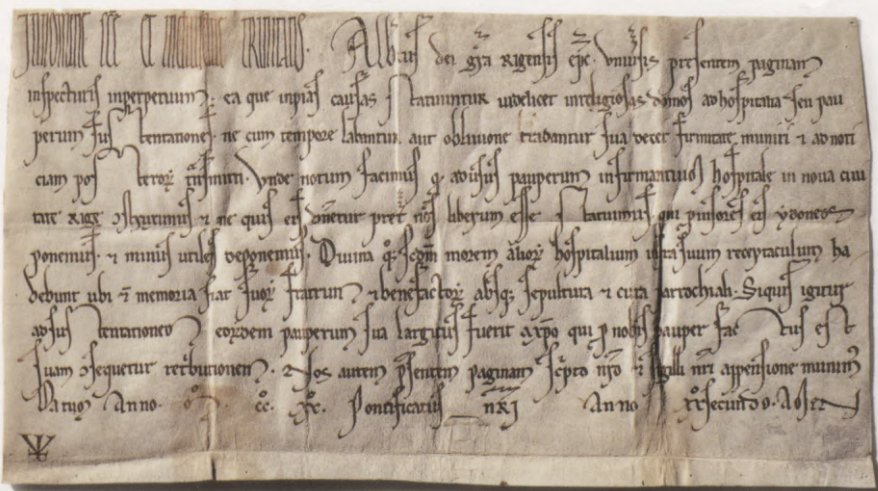 In nomine sce et individue trinitatis. Albertus dei gra Rigensis epc. Universis presentem paginam
inspecturis inperpetuum. ea que inpias causas statuuntur videlicet inreligiosas domos ad hospitalia seu pau
perum sustentationes. ne cum tempore labantur aut oblivione tradantur sua decet firmitate muniri et ad noti
ciam posteror transmitti. Unde notum facimus q ad usus pauperum infirmantium hospitale in nova civi
tate Rige et ne quis eis liberum esse statuimus. qui eis ydoneos
ponemus. et minus utiles deponemus. Divina q scdm morem alior hospitalium infra suum receptaculum ha
debunt ubi et memoria fiat suor fratrum et benefactor absq sepultura et cura parrochiali. Siquis igitur
ad sustentationem eordem pauperum sua largitus fuerit a xpo qui p nobis pauper factus est
suam consequetur retributionem. Nos autem psentem paginam scpto nro et sigilli nri appensione munimus
Datum Anno. cc. xx. Pontificatus nri Anno xx secundo.